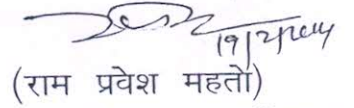 19/2/2014
(राम प्रवेश महतो)